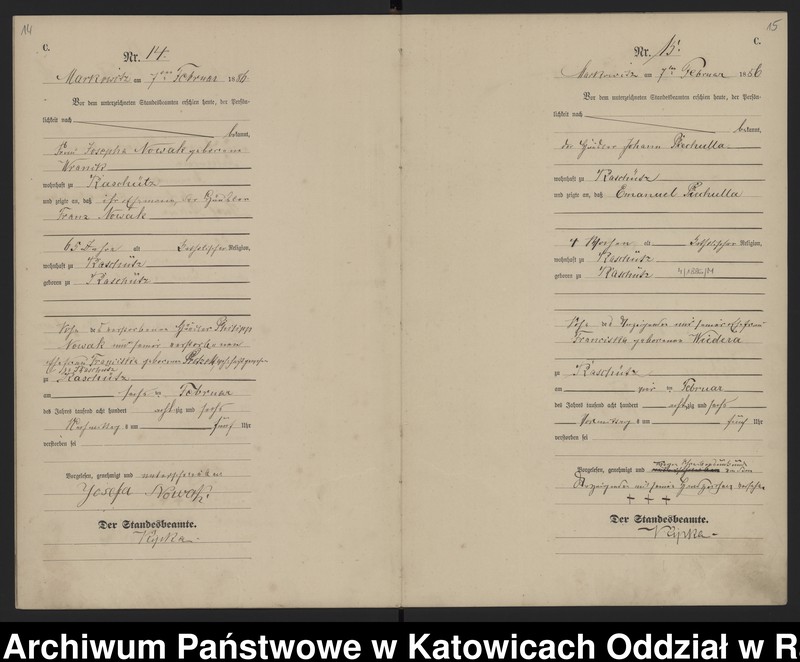 14
C.
Nr. 14.
Markowitz am 7ten Februar 1886
Vor dem unterzeichneten Standesbeamten erschien heute, der Persön-
lichkeit nach
bekannt,
Frau Josepha Nowak geborene
Wranik
wohnhaft zu Raschütz
und zeigte an, daß ihr Ehemann, der Häusler
Franz Nowak
65 Jahre alt katholischer Religion,
wohnhaft zu Raschütz
geboren zu Raschütz
Sohn des verstorbenen Gärtner Philipp
Nowak und seiner verstorbenen
Ehefrau Franciska geborenen
zu Raschütz
am sechs ten Februar
des Jahres tausend acht hundert achtzig und sechs
Nachmittag s um fünf Uhr
verstorben sei
Vorgelesen, genehmigt und unterschrieben
Josefa Nowak.
Der Standesbeamte.
15
C.
Nr. 15.
Markowitz am 7ten Februar 1886
Vor dem unterzeichneten Standesbeamten erschien heute, der Persön-
lichkeit nach
bekannt,
der Gärtner Johann
wohnhaft zu Raschütz
und zeigte an, daß Emanuel
4 Wochen alt katholischer Religion,
wohnhaft zu Raschütz
geboren zu Raschütz
Sohn des Anzeigender und seiner Ehefrau
Franciska geborenen
zu Raschütz
am ten Februar
des Jahres tausend acht hundert achtzig und sechs
Vormittag s um fünf Uhr
verstorben sei
Vorgelesen, genehmigt und wegen Schreibensunkunde von dem
Anzeigender mit seinem Handzeichen versehen
+ + +
Der Standesbeamte.
Archiwum Państwowe w Katowicach Oddział w R